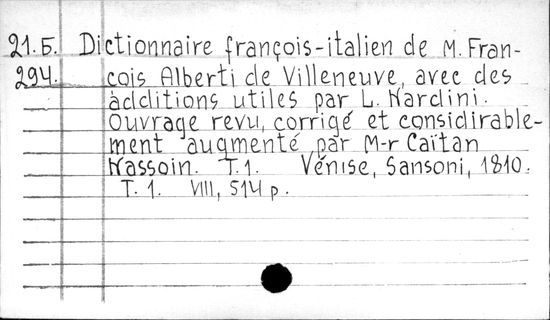 21.Б. Dictionnaire françois-italien de M. Fran-
294. çois Alberti de Villeneuve, avec des
additions utiles par L. Nardini.
Ouvrage revu, corrigé et considirable-
ment augmenté par M-r Caïtan
Nassoin. T. 1. Vénise, Sansoni, 1810.
T. 1. VIII, 514 p.